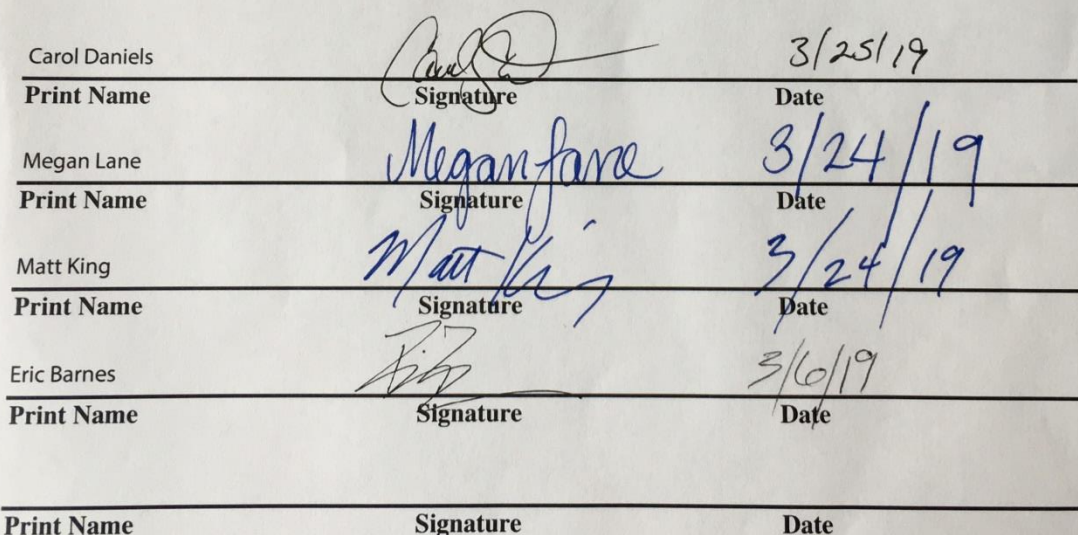 Carol Daniels 3/25/19
Print Name Signature Date
Megan Lane Megan Lane 3/24/19
Print Name Signature Date
Matt King Matt King 3/24/19
Print Name Signature Date
Eric Barnes 3/6/19
Print Name Signature Date
Print Name Signature Date